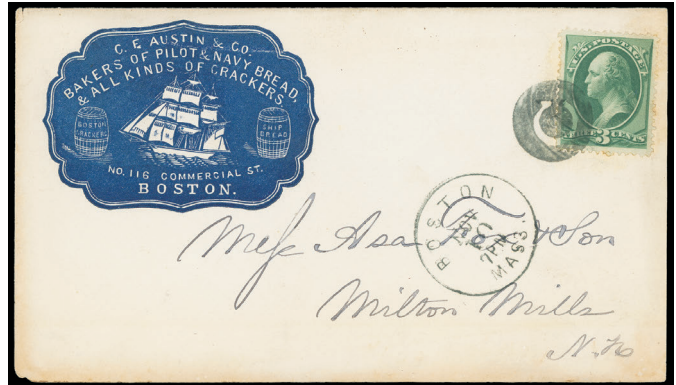 C. E. AUSTIN & CO.
BAKERS OF PILOT & NAVY BREAD,
& ALL KINDS OF CRACKERS,
BOSTON
CRACKERS
SHIP
BREAD
NO. 116 COMMERCIAL ST.
BOSTON.
U.S. POSTAGE
THREE 3 CENTS
BOSTON
7PM
MASS.
Mess Asa & Son
Milton Mills
N. H